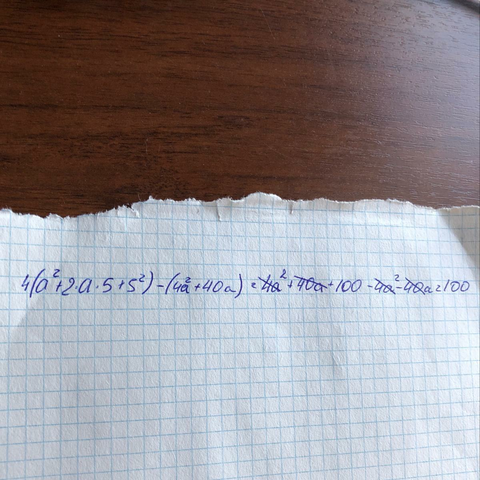 4(a²+2·a·5+5²)-(4a²+40a)=4a²+40a+100-4a²-40a=100